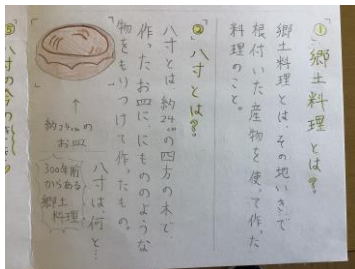 ① 郷土料理とは?
郷土料理とは、その地いきで
根付いた産物を使って作った
料理のこと。
② 八寸とは?
八寸とは約24㎝の四方の木で
作ったお皿に、にもののような
物をもりつけて作ったもの。
↑
約24㎝の
お皿
八寸は、何と…
300年前
からある
郷土
料理
⑤ 八寸の